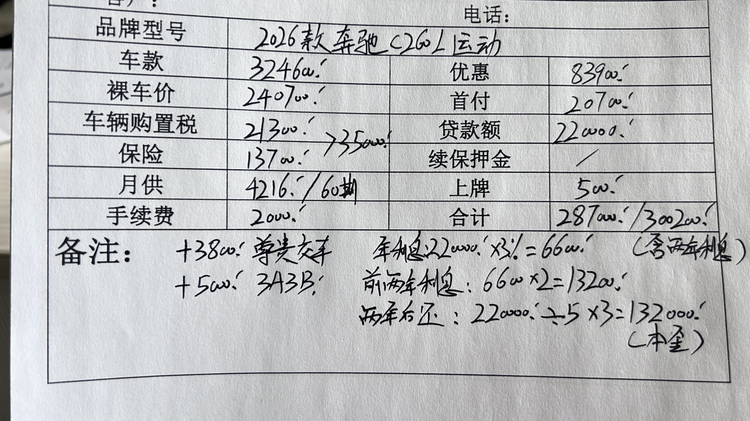 电话：
品牌型号 2026款奔驰C260L运动
车款 324600 优惠 83900
裸车价 240700 首付 20700
车辆购置税 21300 >35000 贷款额 220000
保险 13700 续保押金 /
月供 4216/60期 上牌 500
手续费 2000 合计 287000/300200
备注： +3800 尊贵交车 年利息:220000×3%=6600 (含两年利息)
+5000 3A3B 前两年利息：6600×2=13200
两年后还：220000÷5×3=132000
(本金)